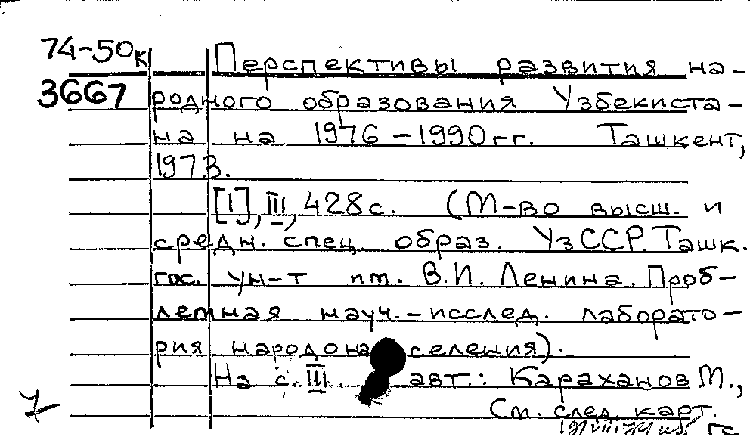 74-50к
3667
Перспективы развития на-
родного образования Узбекиста-
на на 1976-1990 гг. Ташкент,
1973.
[1], III, 428 с. (М-во высш. и
средн. спец. образ. УзССР. Ташк.
гос. ун-т им. В.И. Ленина. Проб-
лемная науч.-исслед. лаборато-
рия народонаселения).
На с. III. авт.: Караханов М.,
См. след. карт.